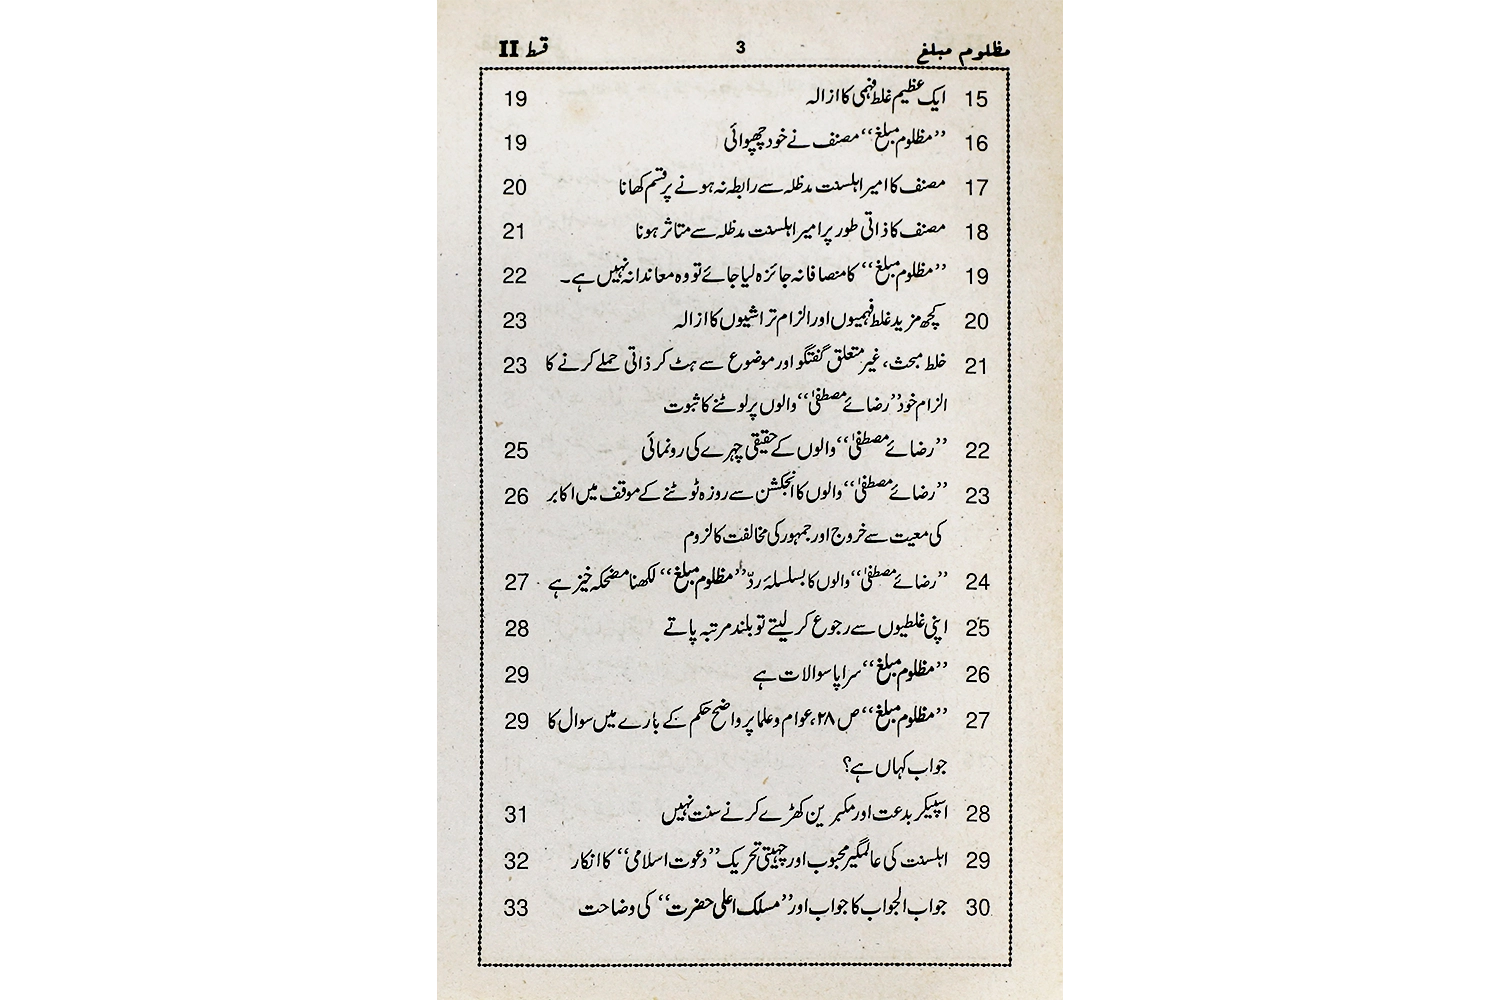 مظلوم مبلغ 3 قسط II
15 ایک عظیم غلط فہمی کا ازالہ 19
16 ”مظلوم مبلغ“ مصنف نے خود چھپوائی 19
17 مصنف کا امیر اہلسنت مدظلہ سے رابطہ نہ ہونے پر قسم کھانا 20
18 مصنف کا ذاتی طور پر امیر اہلسنت مدظلہ سے متاثر ہونا 21
19 ”مظلوم مبلغ“ کا منصافانہ جائزہ لیا جائے تو وہ معاندانہ نہیں ہے۔ 22
20 کچھ مزید غلط فہمیوں اور الزام تراشیوں کا ازالہ 23
21 خلط مبحث، غیر متعلق گفتگو اور موضوع سے ہٹ کر ذاتی حملے کرنے کا 23
الزام خود ”رضائے مصطفیٰ“ والوں پر لوٹنے کا ثبوت
22 ”رضائے مصطفیٰ“ والوں کے حقیقی چہرے کی رونمائی 25
23 ”رضائے مصطفیٰ“ والوں کا انجکشن سے روزہ ٹوٹنے کے موقف میں اکابر 26
کی معیت سے خروج اور جمہور کی مخالفت کا لزوم
24 ”رضائے مصطفیٰ“ والوں کا بسلسلۂ ردّ ”مظلوم مبلغ“ لکھنا مضحکہ خیز ہے 27
25 اپنی غلطیوں سے رجوع کر لیتے تو بلند مرتبہ پاتے 28
26 ”مظلوم مبلغ“ سراپا سوالات ہے 29
27 ”مظلوم مبلغ“ ص ۲۸، عوام و علما پر واضح حکم کے بارے میں سوال کا 29
جواب کہاں ہے؟
28 اسپیکر بدعت اور مکبرین کھڑے کرنے سنت نہیں 31
29 اہلسنت کی عالمگیر محبوب اور چہیتی تحریک ”دعوت اسلامی“ کا انکار 32
30 جواب الجواب کا جواب اور ”مسلک اعلی حضرت“ کی وضاحت 33